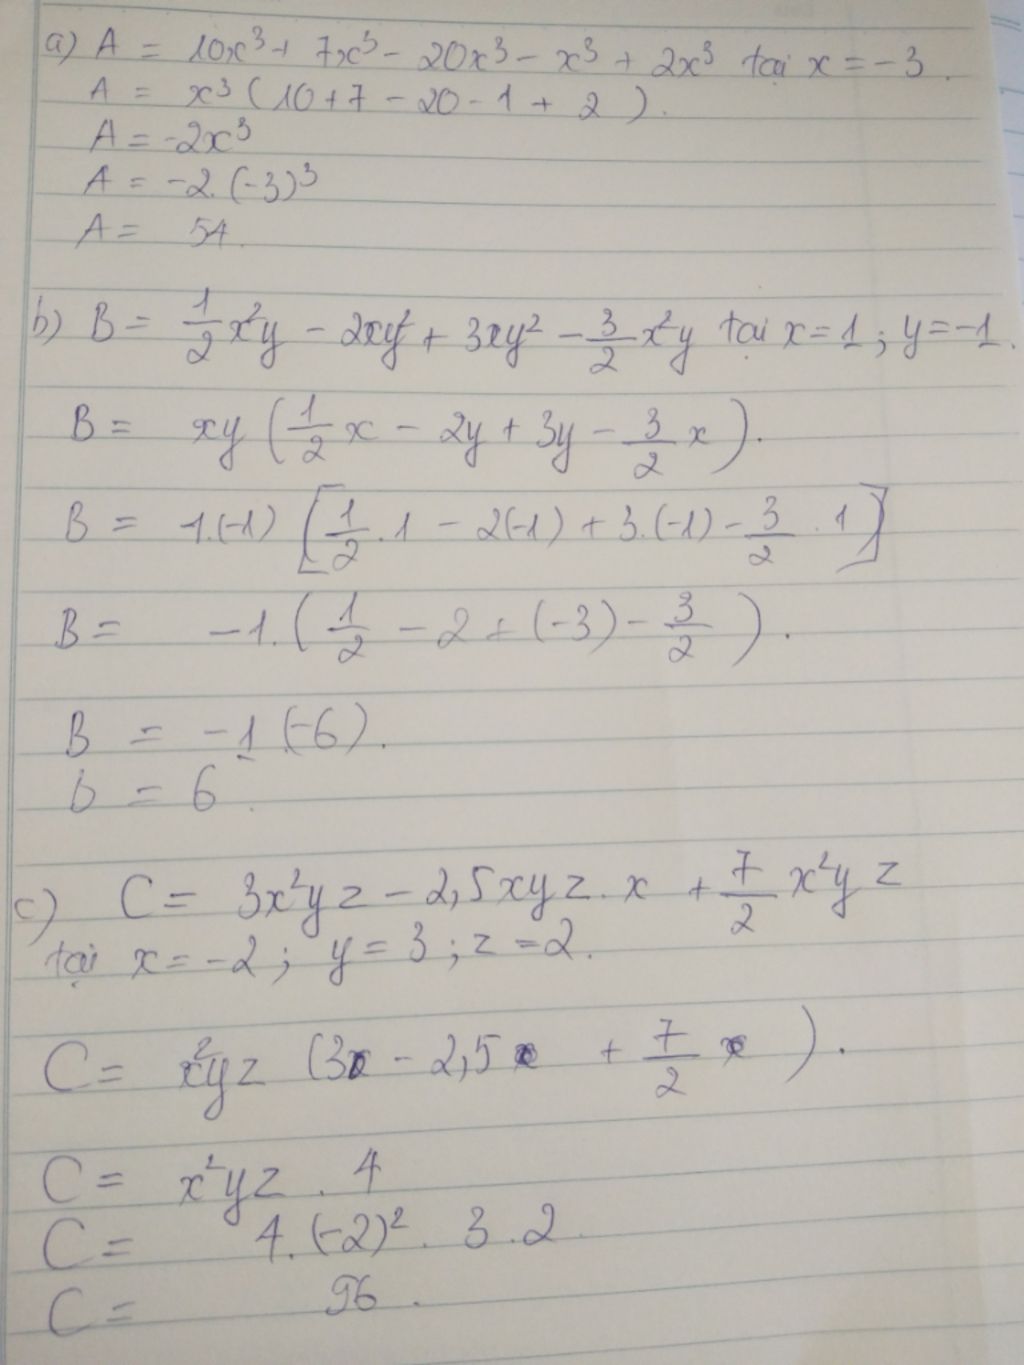 a) A = 10x³ + 7x³ - 20x³ - x³ + 2x³ tại x = -3.
A = x³ (10 + 7 - 20 - 1 + 2).
A = -2x³
A = -2.(-3)³
A = 54.
b) B = 1/2 x²y - 2xy² + 3xy² - 3/2 x²y tại x = 1; y = -1.
B = xy (1/2 x - 2y + 3y - 3/2 x).
B = 1.(-1) [1/2 . 1 - 2(-1) + 3.(-1) - 3/2 . 1]
B = -1. (1/2 - 2 + (-3) - 3/2).
B = -1 (-6).
b = 6.
c) C = 3x²yz - 2,5xyz.x + 7/2 x²yz
tại x = -2; y = 3; z = 2.
C = x²yz (3 - 2,5 + 7/2).
C = x²yz . 4
C = 4.(-2)². 3.2
C = 96.